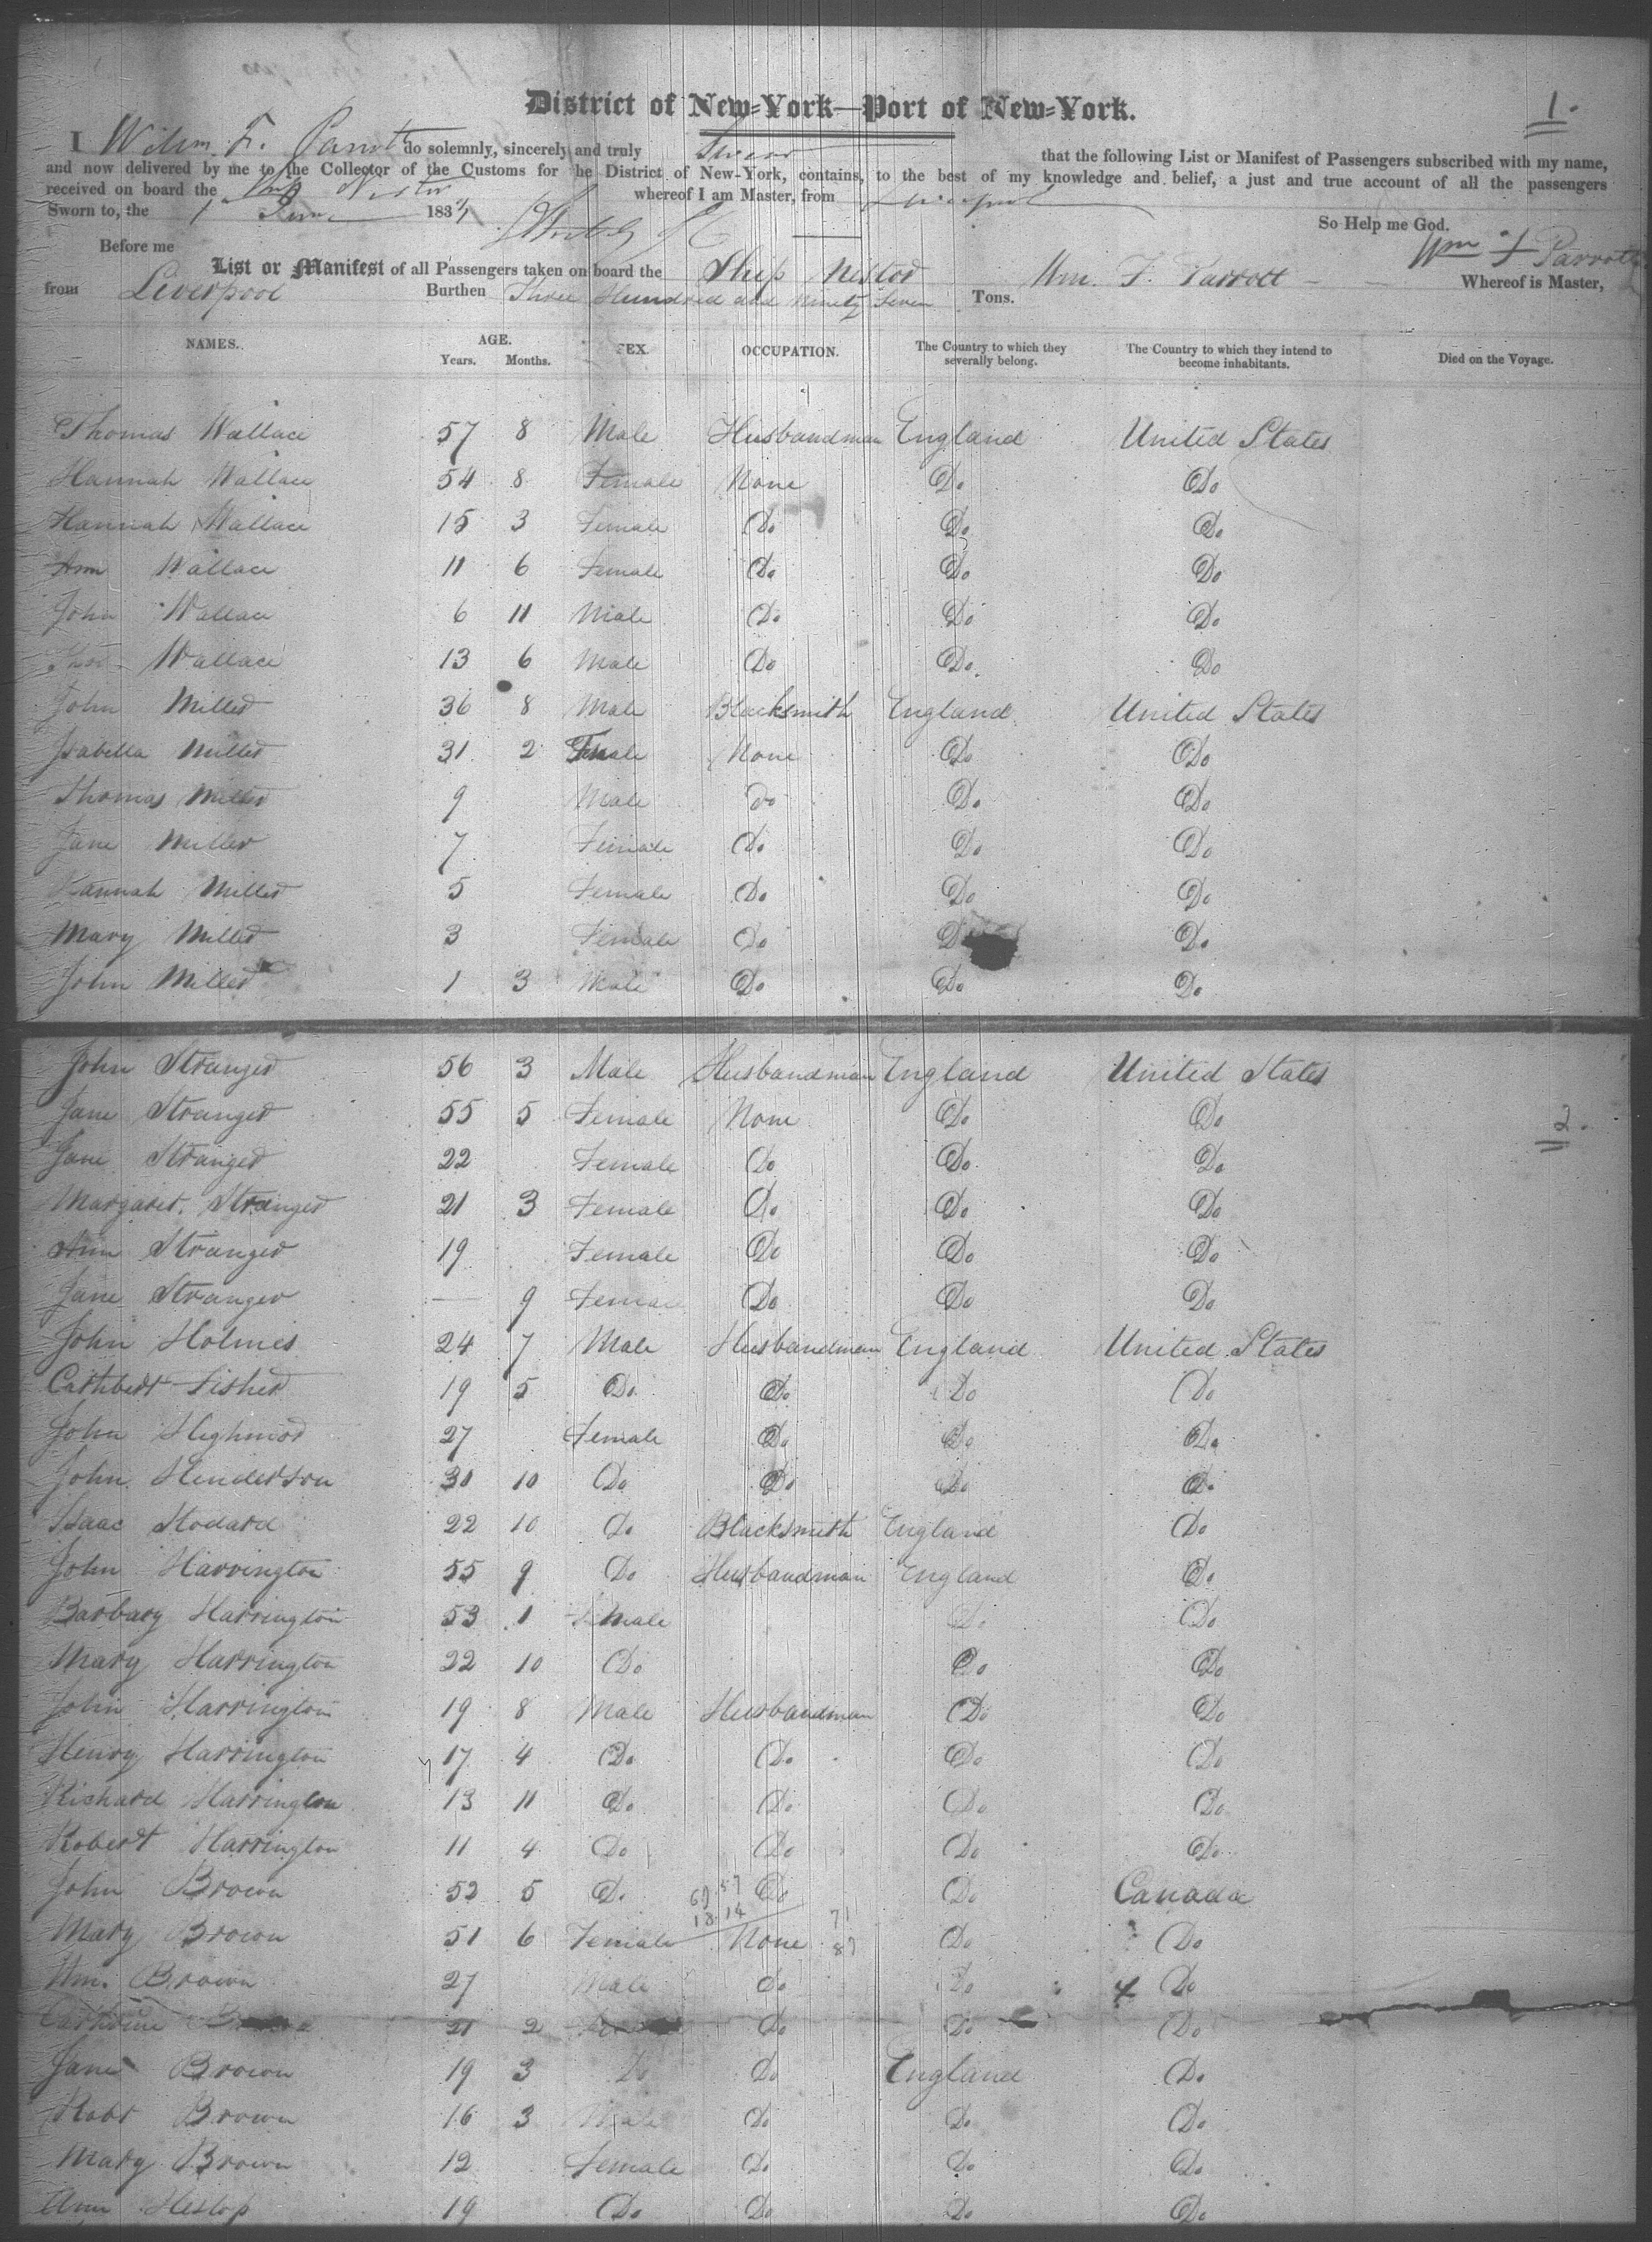 District of New-York—Port of New-York.
1.
I Wilm. F. Parrott do solemnly, sincerely and truly Swear that the following List or Manifest of Passengers subscribed with my name,
and now delivered by me to the Collector of the Customs for the District of New-York, contains, to the best of my knowledge and belief, a just and true account of all the passengers
received on board the Ship Nestor whereof I am Master, from Liverpool
Sworn to, the 1 June 183
So Help me God.
Before me
Wm F Parrott
List or Manifest of all Passengers taken on board the Ship Nestor Wm. F. Parrott Whereof is Master,
from Liverpool Burthen Three Hundred and Ninety Seven Tons.
NAMES. AGE. Years. Months. SEX. OCCUPATION. The Country to which they severally belong. The Country to which they intend to become inhabitants. Died on the Voyage.
Thomas Wallace 57 8 Male Husbandman England United States
Hannah Wallace 54 8 Female None Do Do
Hannah Wallace 15 3 Female Do Do Do
Ann Wallace 11 6 Female Do Do Do
John Wallace 6 11 Male Do Do Do
Thos Wallace 13 6 Male Do Do Do
John Miller 36 8 Male Blacksmith England United States
Isabella Miller 31 2 Female None Do Do
Thomas Miller 9 Male Do Do Do
Jane Miller 7 Female Do Do Do
Hannah Miller 5 Female Do Do Do
Mary Miller 3 Female Do Do Do
John Miller 1 3 Male Do Do Do
John Stranger 56 3 Male Husbandman England United States
Jane Stranger 55 5 Female None Do Do
2.
Jane Stranger 22 Female Do Do Do
Margaret Stranger 21 3 Female Do Do Do
Ann Stranger 19 Female Do Do Do
Jane Stranger — 9 Female Do Do Do
John Holmes 24 7 Male Husbandman England United States
Cuthbert Fisher 19 5 Do Do Do Do
John Highmor 27 Female Do Do Do
John Henderson 30 10 Do Do Do Do
Isaac Stodard 22 10 Do Blacksmith England Do
John Harrington 55 9 Do Husbandman England Do
Barbary Harrington 53 1 Female Do Do
Mary Harrington 22 10 Do Do Do
John Harrington 19 8 Male Husbandman Do Do
Henry Harrington 17 4 Do Do Do Do
Richard Harrington 13 11 Do Do Do Do
Robert Harrington 11 4 Do Do Do Do
John Brown 52 5 Do Do Do Canada
Mary Brown 51 6 Female None Do Do
Wm. Brown 27 Male Do Do Do
Catherine Brown 21 2 Female Do Do Do
Jane Brown 19 3 Do Do England Do
Robt Brown 16 3 Male Do Do Do
Mary Brown 12 Female Do Do Do
Ann Heslop 19 Do Do Do Do